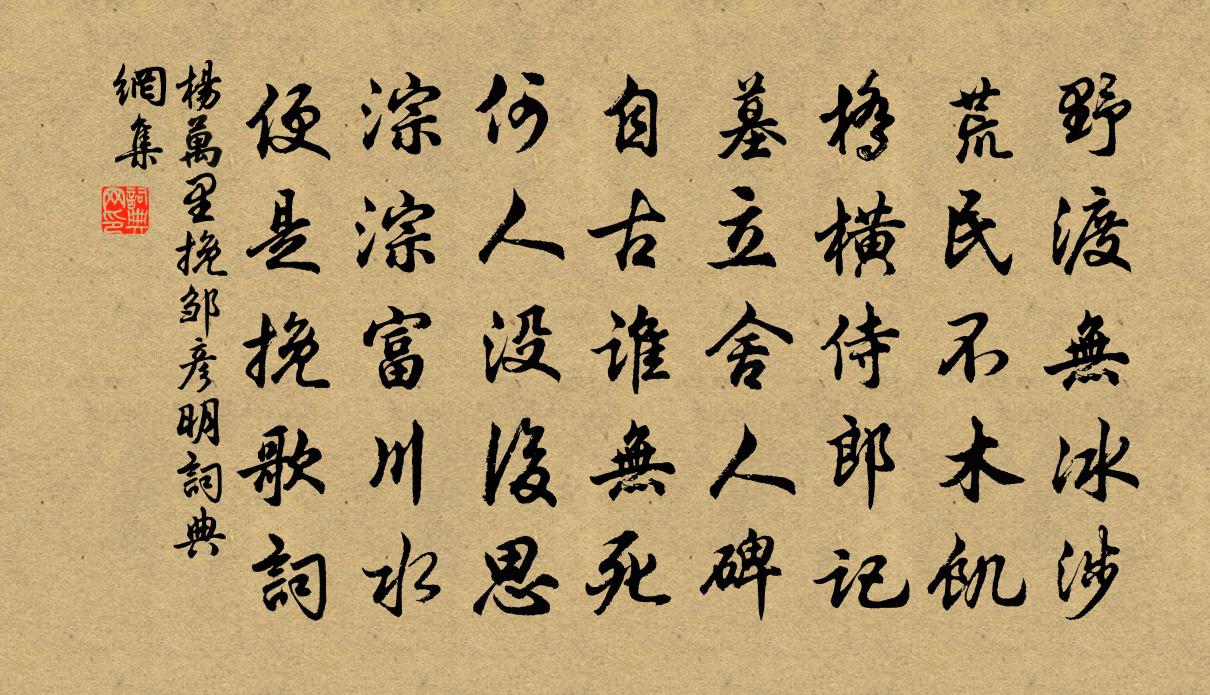 野渡無冰涉
荒民不木飢
橋橫侍郎記
墓立舍人碑
自古誰無死
何人沒後思
淙淙富川水
便是挽歌詞
楊萬里挽邹彦明詞典
網集
詞典
网印